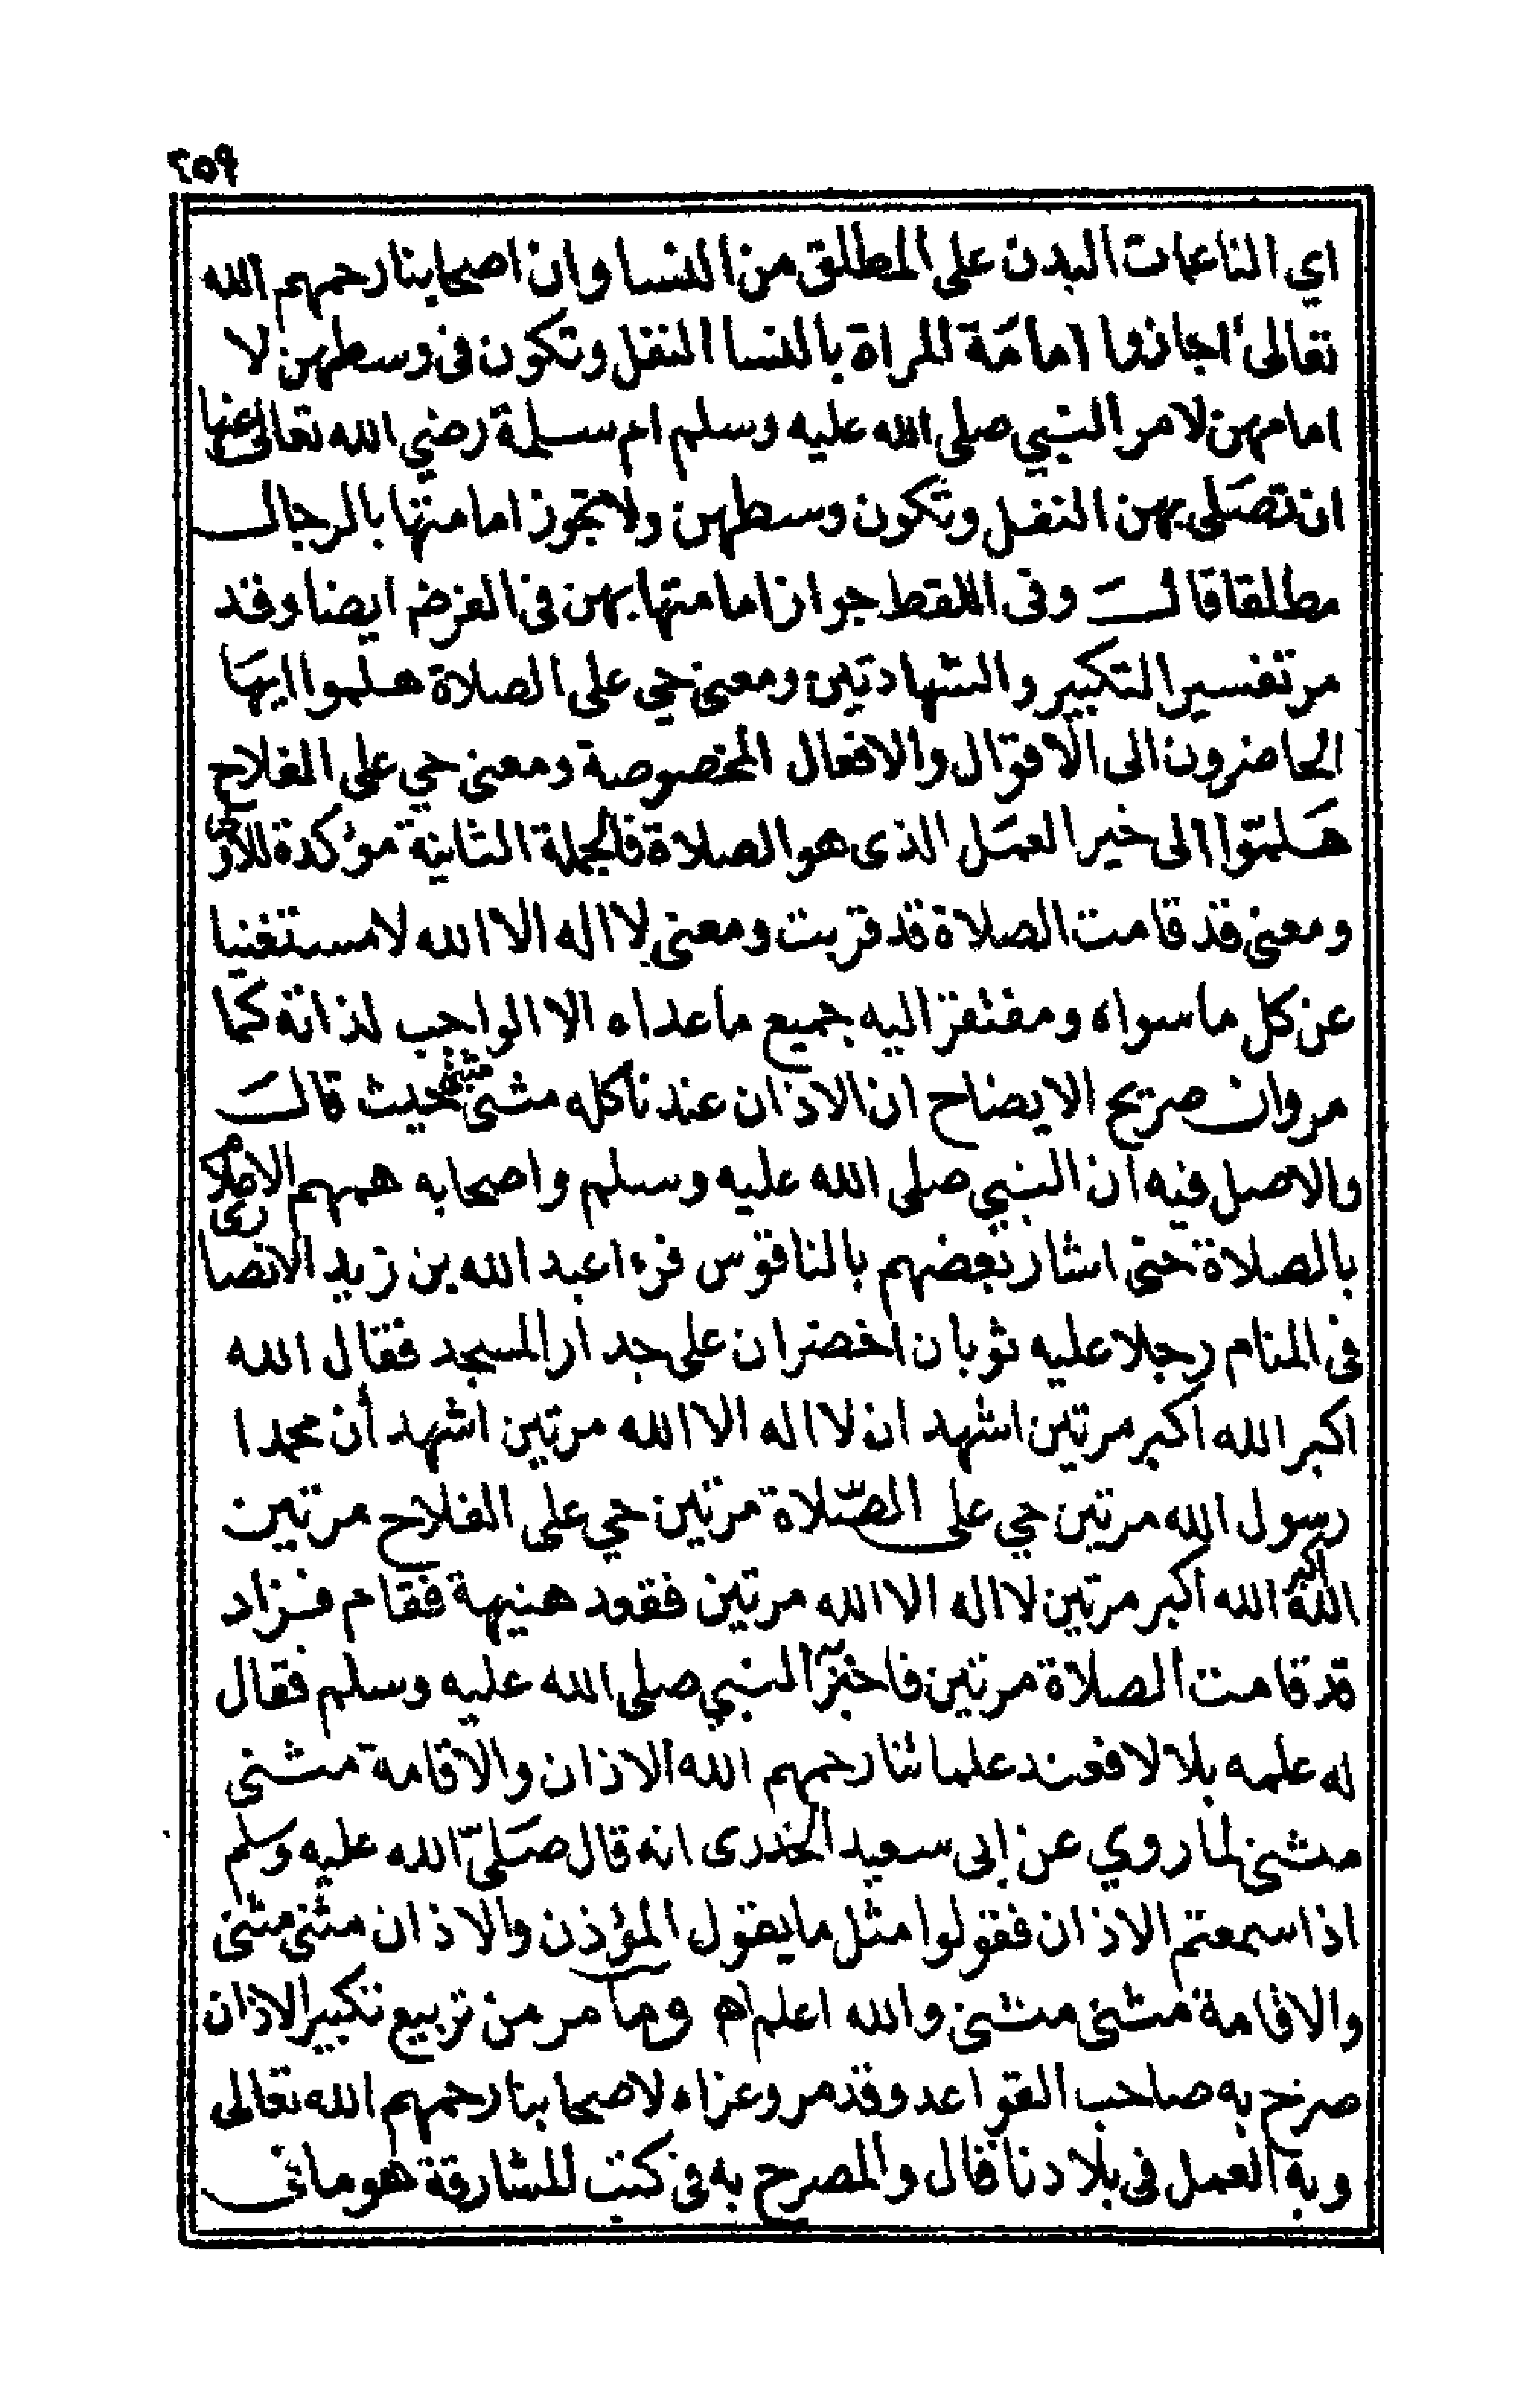 ٢٥٩
اي الناعمات البدن على المطلق من النسا وان اصحابنا رحمهم الله
تعالى اجازوا امامة المراة بالنسا النفل وتكون في وسطهن لا
امامهن لامر النبي صلى الله عليه وسلم ام سلمة رضي الله تعالى عنها
ان تصلى بهن النفل وتكون وسطهن ولا تجوز امامتها بالرجال
مطلقا قال وفى اللقط جواز امامتها بهن في الفرض ايضا وقد
مر تفسير التكبير والشهادتين ومعنى حي على الصلاة هلموا ايها
الحاضرون الى الاقوال والافعال المخصوصة ومعنى حي على الفلاح
هلموا الى خير العمل الذى هو الصلاة فالجملة الثانية مؤكدة للاولى
ومعنى قد قامت الصلاة قد قربت ومعنى لا اله الا الله لا مستغنيا
عن كل ما سواه ومفتقرا اليه جميع ما عداه الا الواجب لذاته كما
مر وان صريح الايضاح ان الاذان عندنا كله مثنى مثنى حيث قال
والاصل فيه ان النبي صلى الله عليه وسلم واصحابه همهم الاعلام
بالصلاة حتى اشار بعضهم بالناقوس فرءا عبد الله بن زيد الانصارى
فى المنام رجلا عليه ثوبان اخضران على جدار المسجد فقال الله
اكبر الله اكبر مرتين اشهد ان لا اله الا الله مرتين اشهد أن محمدا
رسول الله مرتين حي على الصّلاة مرتين حي على الفلاح مرتين
الله اكبر الله اكبر مرتين لا اله الا الله مرتين فقعد هنيهة فقام فزاد
قد قامت الصلاة مرتين فاخبر النبي صلى الله عليه وسلم فقال
له علمه بلالا فعند علمائنا رحمهم الله الاذان والاقامة مثنى
مثنى لما روي عن ابى سعيد الخدرى انه قال صلىّ الله عليه وسلم
اذا سمعتم الاذان فقولوا مثل ما يقول المؤذن والاذان مثنى مثنى
والاقامة مثنى مثنى والله اعلم اه وما مر من تربيع تكبير الاذان
صرح به صاحب القواعد وقد مر وعزاه لاصحابنا رحمهم الله تعالى
وبه العمل فى بلادنا قال والمصرح به فى كتب المشارقة هو ما في